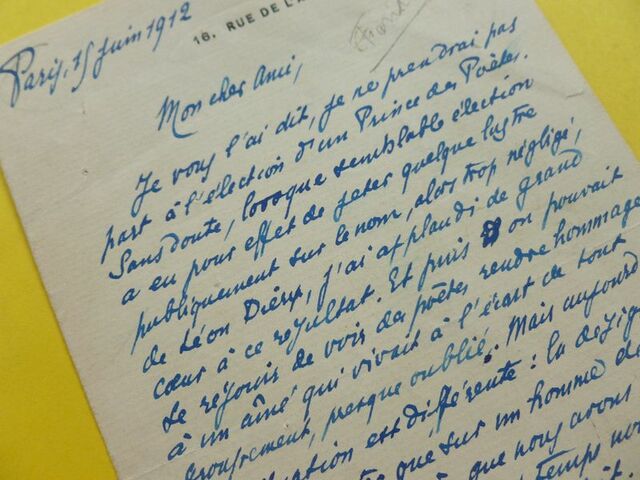 16, RUE DE L'A
Paris, 15 juin 1912
Mon cher Ami,
Je vous l'ai dit, je ne prendrai pas
part à l'élection d'un Prince des Poètes.
Sans doute, lorsque semblable élection
a eu pour effet de jeter quelque lustre
publiquement sur le nom, alors trop négligé,
de Léon Dierx, j'ai applaudi de grand
cœur à ce résultat. Et puis on pouvait
se réjouir de voir des poètes rendre hommage
à un aîné qui vivait à l'écart de tout
groupement, presque oublié. Mais aujourd
uation est différente : la désig
te que sur un homme de
que nous avons
temps nou